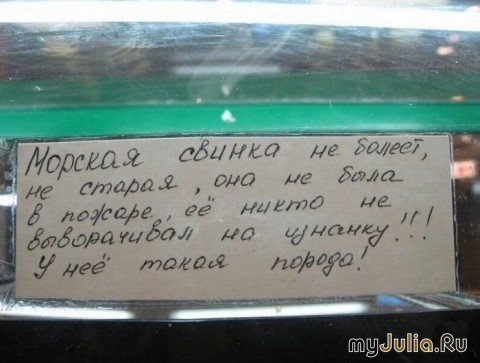 Морская свинка не болеет,
не старая, она не была
в пожаре, её никто не
выворачивал на изнанку!!!
У неё такая порода!
myJulia.Ru